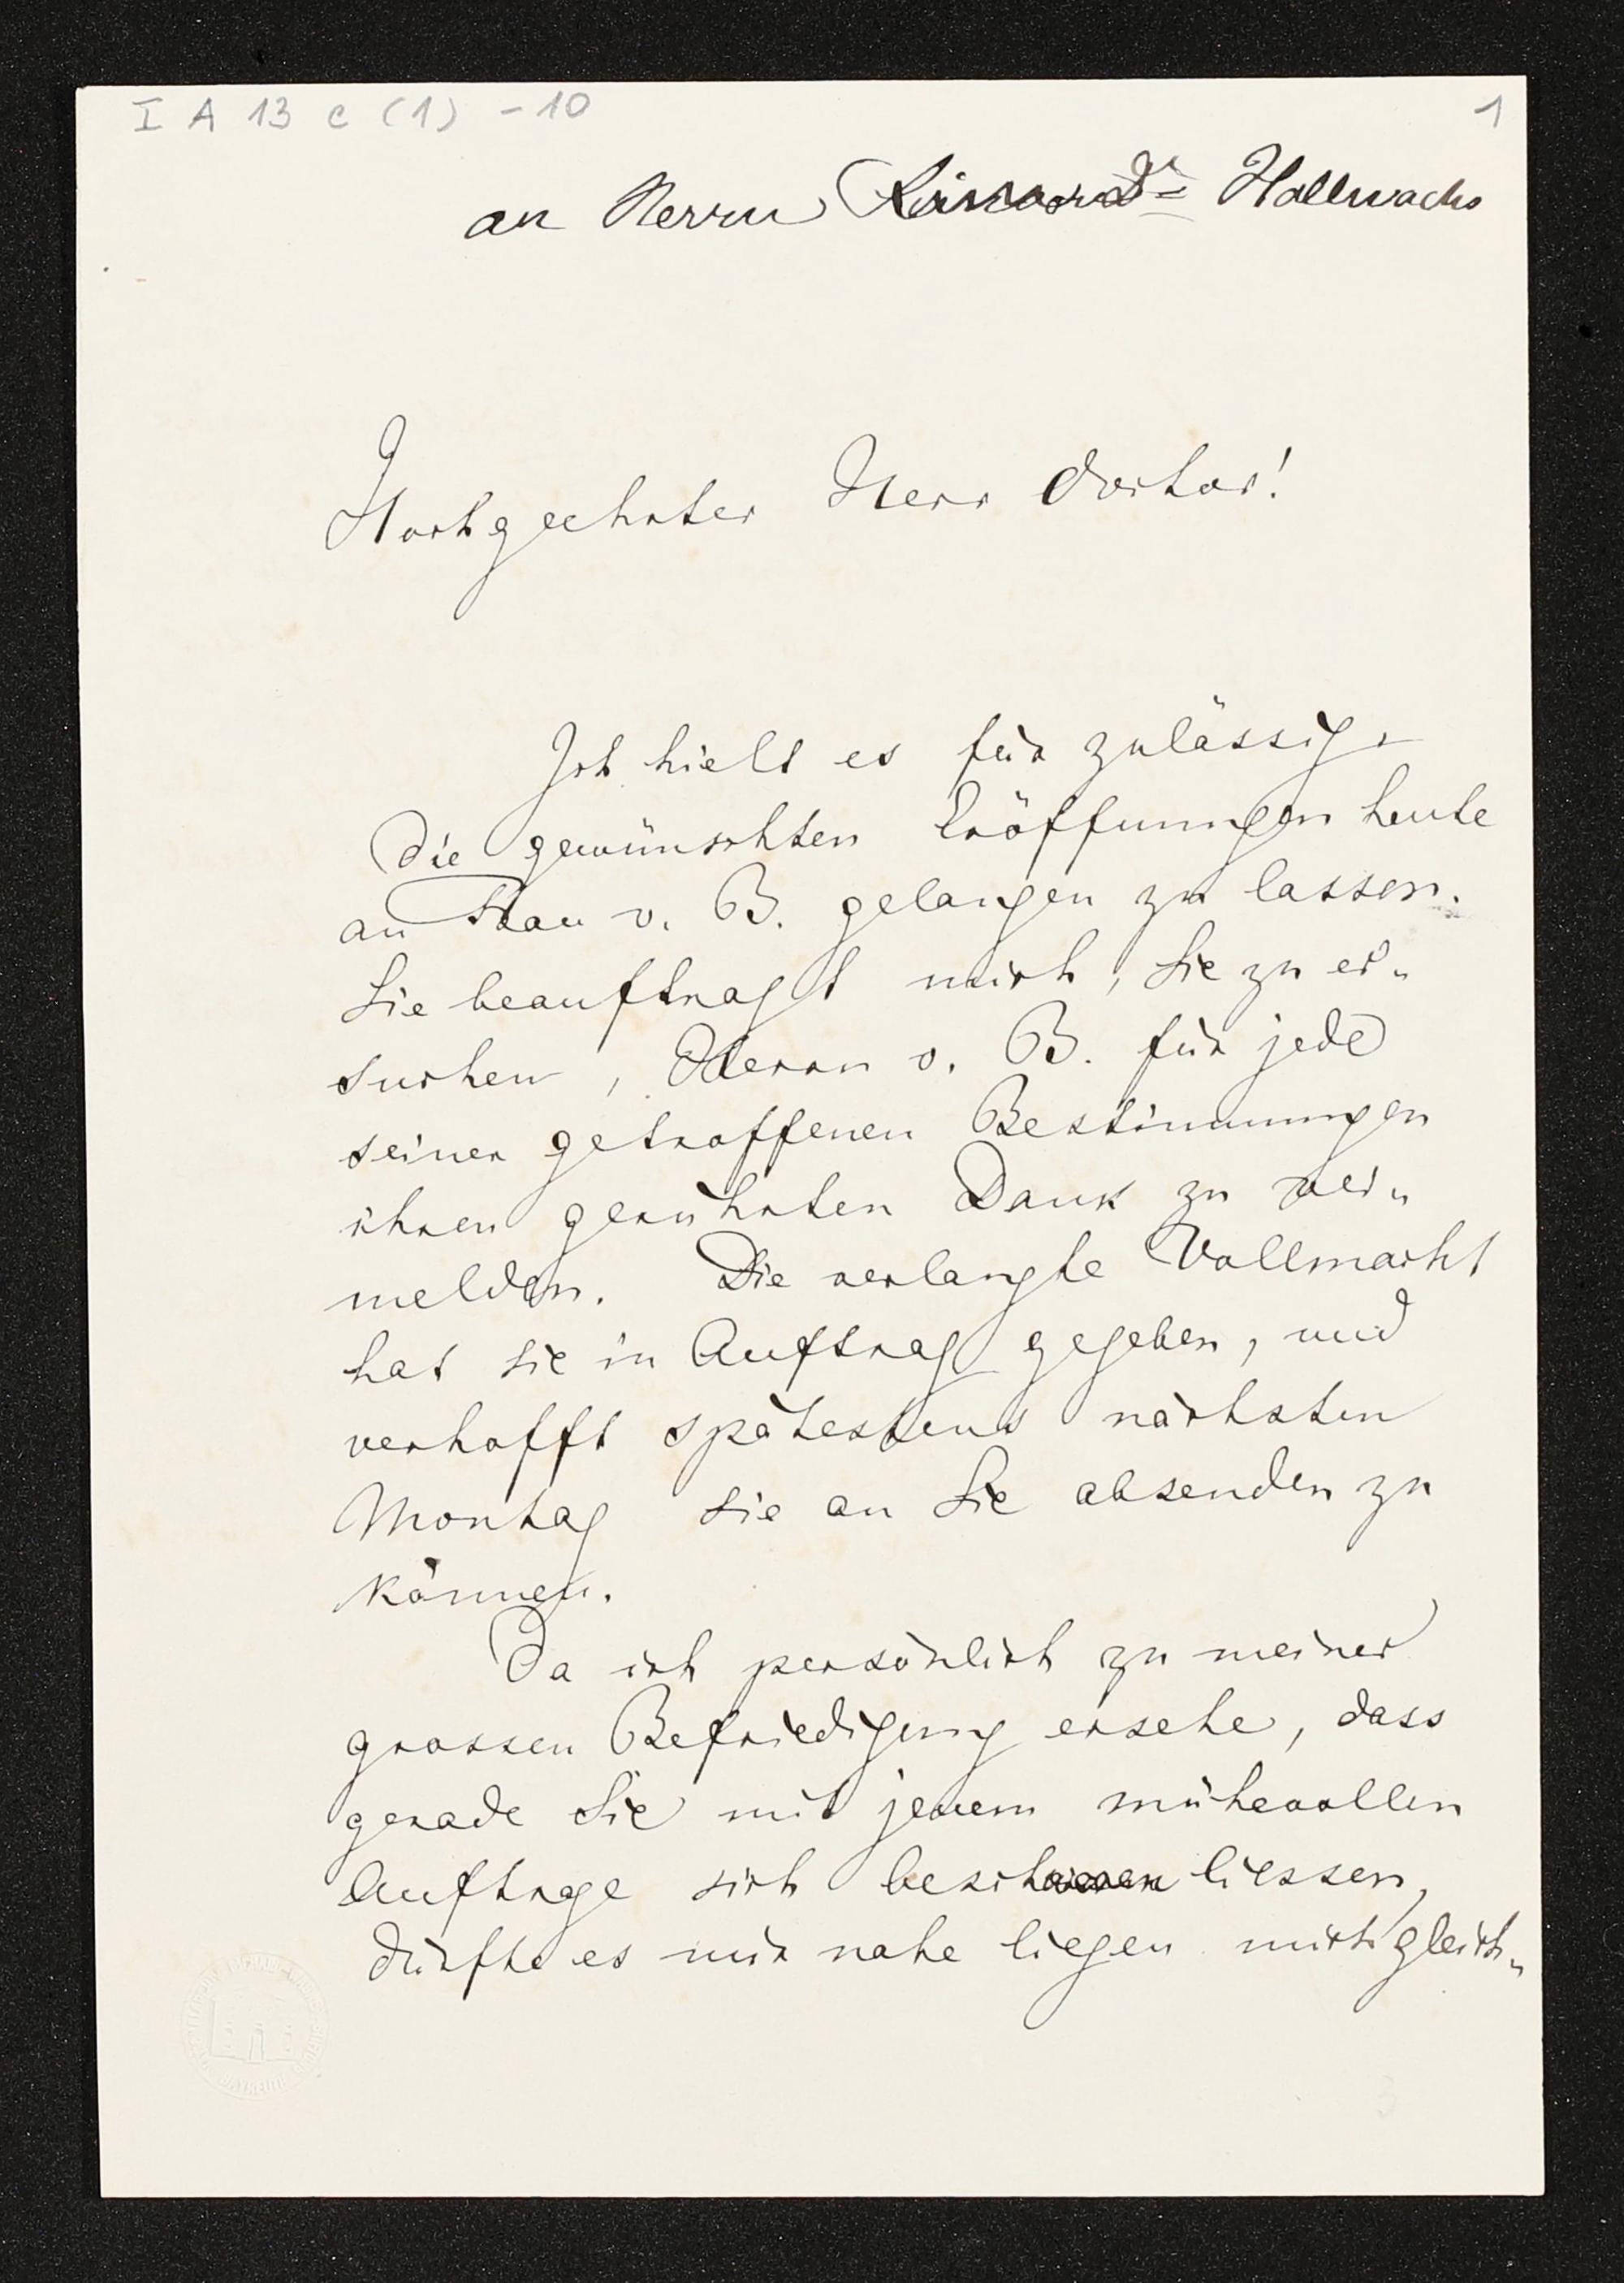 I A 13 c (1) - 10
1
an Herrn Dr Hallwachs
Hochgeehrter Herr Doctor!
Ich hielt es für zulässig,
die gewünschten Eröffnungen heute
an Frau v. B. gelangen zu lassen.
Sie beauftragt mich, Sie zu er„
suchen, Herrn v. B. für jede
seiner getroffenen Bestimmungen
ihren gerührten Dank zu ver„
melden. Die verlangte Vollmacht
hat sie in Auftrag gegeben, und
verhofft spätestens nächsten
Montag sie an Sie absenden zu
können.
Da ich persönlich zu meiner
grossen Befriedigung ersehe, dass
gerade Sie mit jenem mühevollen
Auftrage sich liessen,
dürfte es mir nahe liegen mich gleich„